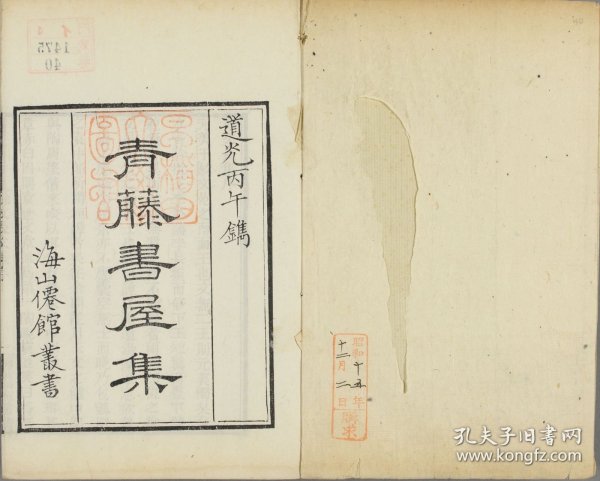 道光丙午鐫
青藤書屋集
海山僊館叢書
昭和十五年
十二月二日
購求
1475
40
40
孔夫子旧书网
www.kongfz.com